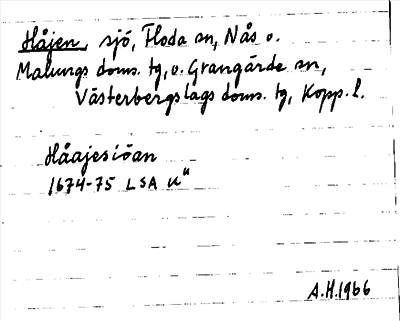 Håjen, sjö, Floda sn, Nås o.
Malungs doms. tg, o. Grangärde sn,
Västerbergslags doms. tg, Kopp. l.
Håajesiöan
1674-75 LSA U"
A.H. 1966